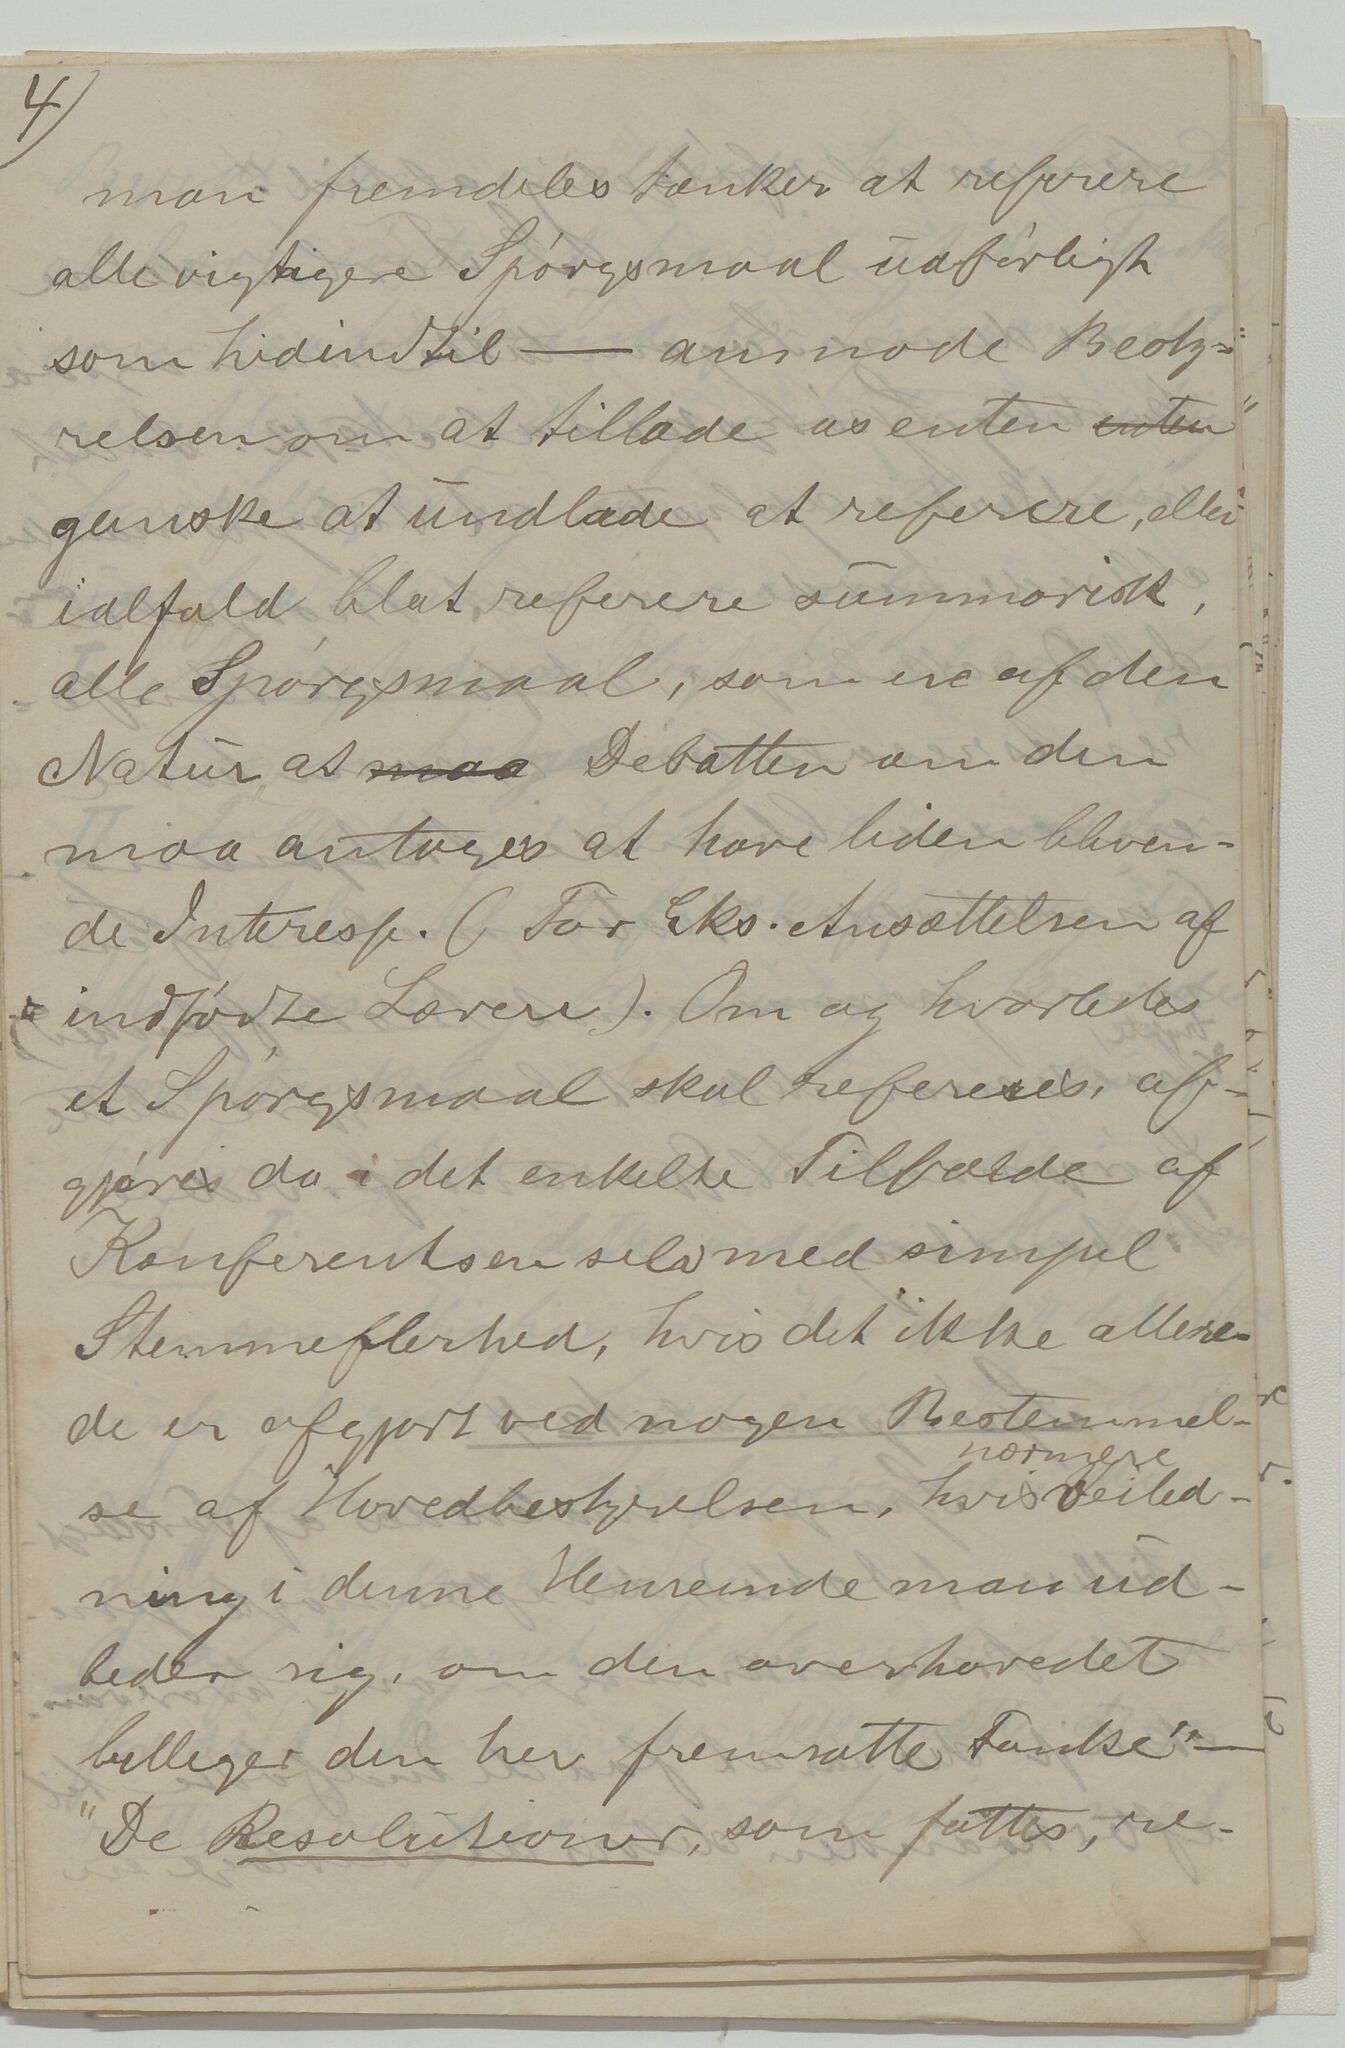 4)
man fremdeles tænker at referere
alle vigtigere Spórgsmaal udfórligt
som hidindtil — anmode Besty-
relsen om at tillade os enten enten
ganske at undlade at referere, eller
ialfald blot referere summarisk,
alle Spórgsmaal, som ere af den
Natur, at maa Debatten om den
maa antages at have liden bliven-
de Interesse. (For Eks. Ansættelsen af
indfódte Lærere). Om og hvorledes
et Spórgsmaal skal refereres, af-
gjóres da i det enkelte Tilfælde af
Konferentsen selv med simpel
Stemmeflerhed, hvis det ikke allere-
de er afgjort ved nogen Bestemmel-
nærmere
se af Hovedbestyrelsen, hvis Veiled-
ning i denne Henseende man ud-
beder sig, om den overhovedet
billiger den her fremsatte Tanke" —
"De Resolutioner, som fattes, re-